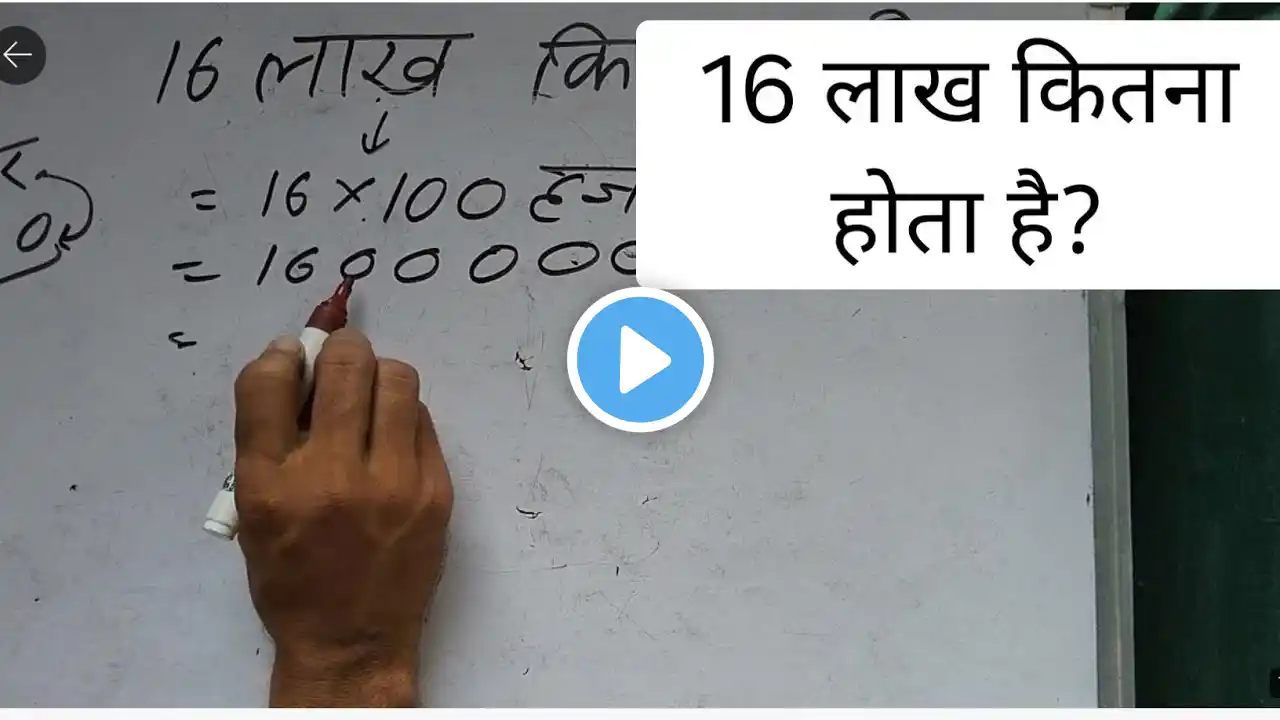 16 लाख कि
= 16 × 100 हज
= 1600000
=
0
16 लाख कितना
होता है?